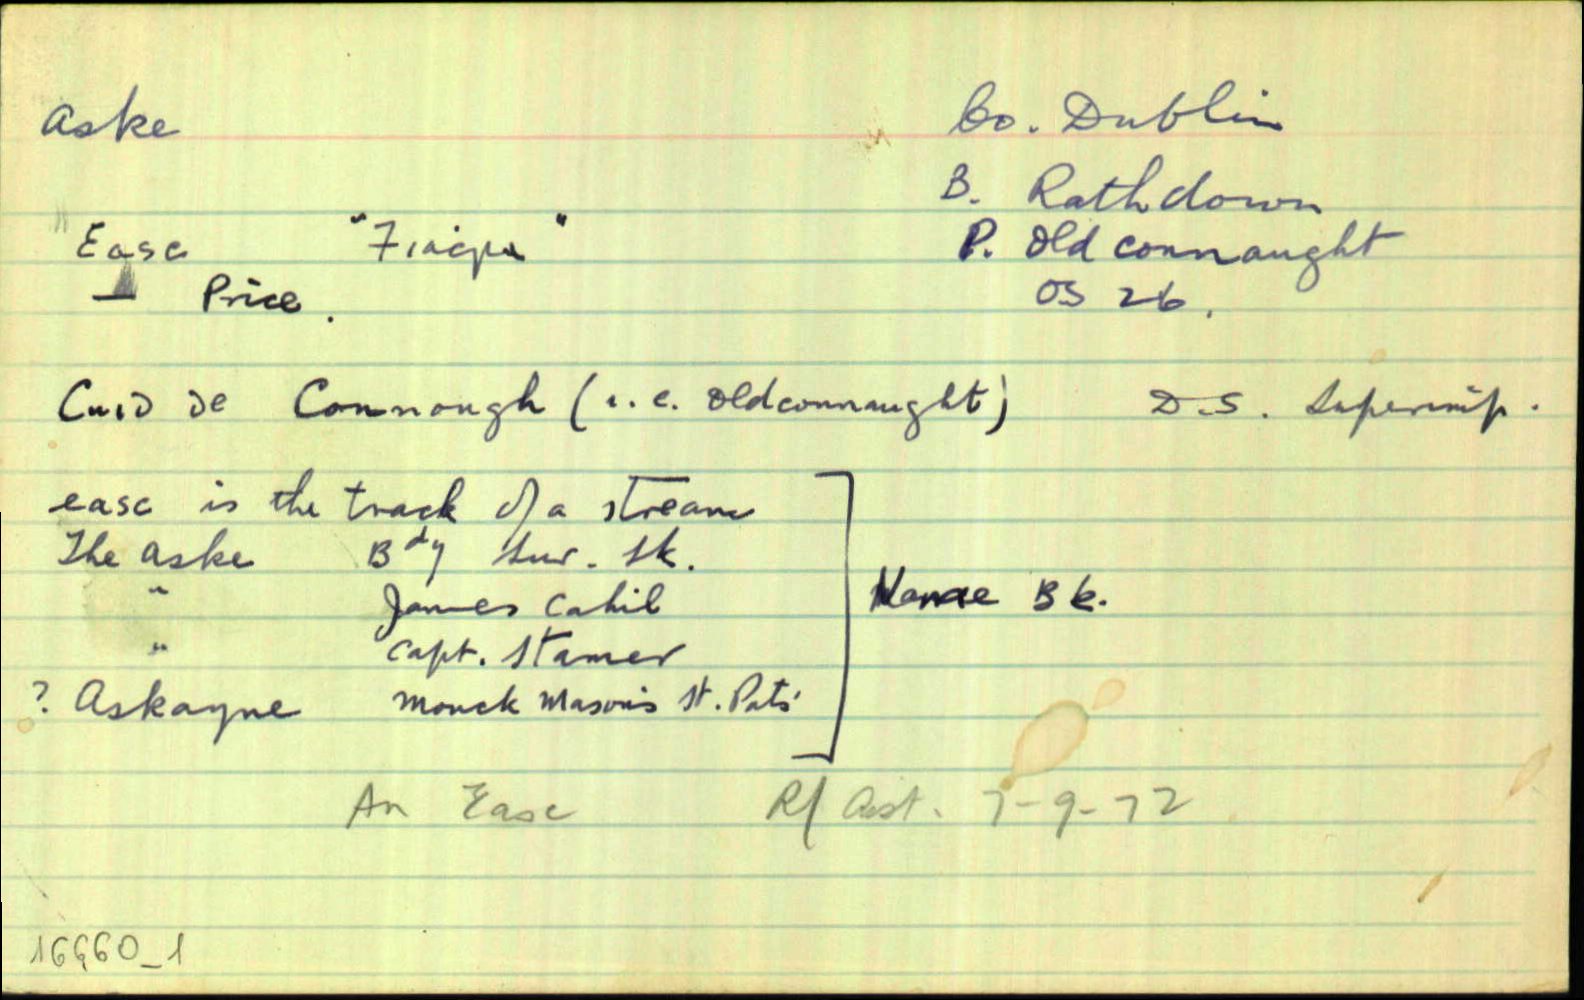 Aske
Co. Dublin
B. Rathdown
P. Old connaught
OS 26.
" Easc
— Price.
Cuid de Connough (i.e. Oldconnaught) D.S. Superimp.
easc is the track of a stream
The Aske Bdy Sur. Sk.
" James Cahil
" Capt. Stamer
? Askayne Monck Mason's St. Pats'
Name Bk.
An Easc Rf Ast. 7-9-72
16660_1